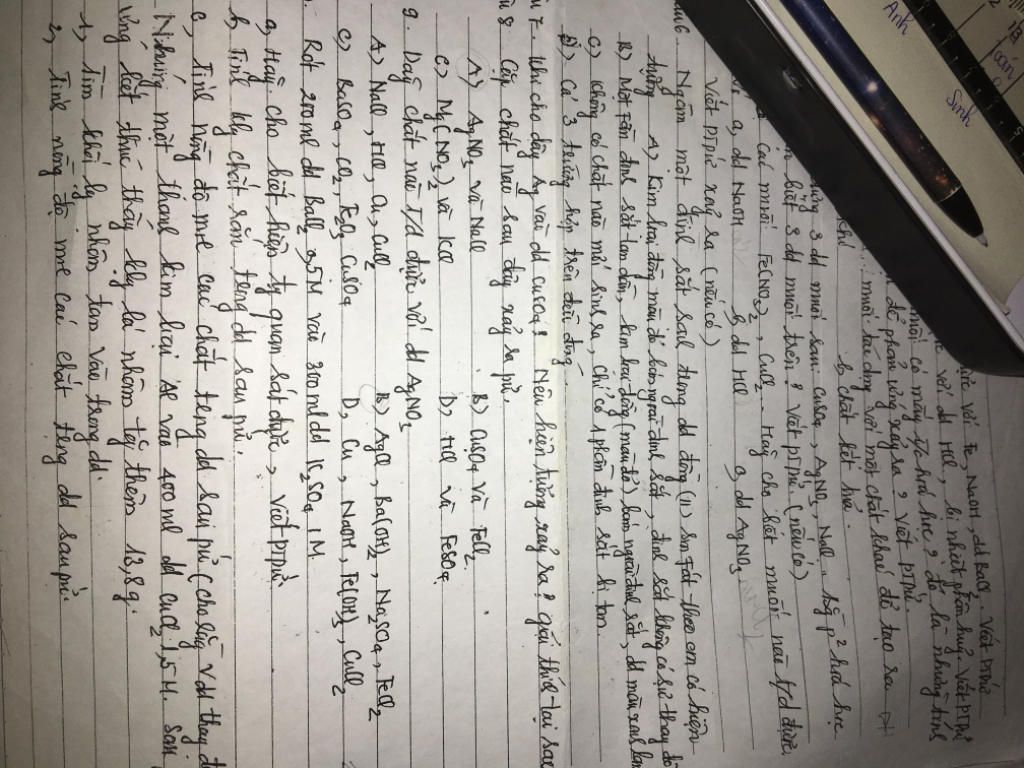 Anh
Toán
Sinh
với Fe, NaOH, dd BaCl₂. Viết PTPƯ
với dd HCl, bị nhiệt phân huỷ. Viết PTPƯ
muối có mấy T/c hoá học? đó là những tính
để phản ứng xảy ra? Viết PTPƯ.
muối tác dụng với một chất khác để tạo ra
b, chất kết tủa.
3 dd muối sau: CuSO₄, AgNO₃, NaCl. bằng p² hoá học
biết 3 dd muối trên? Viết ptpư (nếu có)
Các muối Fe(NO₃)₂, CuCl₂. Hãy cho biết muối nào t/d được
a, dd NaOH b, dd HCl c, dd AgNO₃
Viết PTPƯ xảy ra (nếu có)
6. Ngâm một đinh sắt sạch trong dd đồng (II) sunfát theo em có hiện
tượng A, Kim loại đồng màu đỏ bám ngoài đinh sắt, đinh sắt không có sự thay đổi
B) Một phần đinh sắt tan dần, kim loại đồng (màu đỏ) bám ngoài đinh sắt, dd màu xanh lam
C) không có chất nào mới sinh ra, chỉ có 1 phần đinh sắt bị tan.
D) Cả 3 trường hợp trên đều đúng
7. Khi cho dây Ag vào dd CuSO₄? Nêu hiện tượng xảy ra? giải thích tại sao
8. Cặp chất nào sau đây xảy ra pư.
A) AgNO₃ và NaCl B) CuSO₄ và FeCl₂.
C) Mg(NO₃)₂ và KCl D) HCl và FeSO₄
9. Dãy chất nào T/d được với dd AgNO₃
A) NaCl, HCl, Cu, CuCl₂ B) AgCl, Ba(OH)₂, Na₂SO₄, FeCl₂
C) BaSO₄, Cl₂, Fe₂O₃ CuSO₄ D, Cu, NaOH, Fe(OH)₃, CuCl₂
Rót 200ml dd BaCl₂ 0,5M vào 300ml dd K₂SO₄ 1M
a, Hãy cho biết hiện tg quan sát được, Viết PTPƯ
b, Tính klg chất rắn trong dd sau pư.
c, Tính nồng độ mol các chất trong dd sau pư (cho rằng V dd thay đ
Nhúng một thanh kim loại Al vào 400ml dd CuCl₂ 1,5M. Sau
ứng kết thúc thấy klg lá nhôm tg thêm 13,8g.
1, Tìm khối lg nhôm tan vào trong dd.
2, Tính nồng độ mol các chất trong dd sau pư.